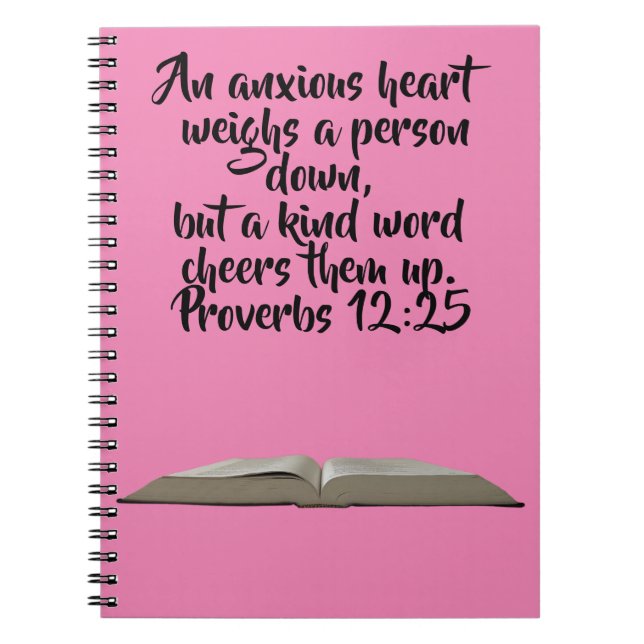 An anxious heart
weighs a person
down,
but a kind word
cheers them up.
Proverbs 12:25